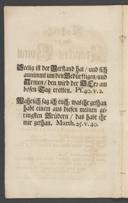 Seelig ist der Verstand hat / und sich
annimmt um den Bedürfftigen / und
Armen / den wird der HErr am
bösen Tag erretten. Ps. 40. v. 2.
Wahrlich sag ich euch / was ihr gethan
habt einem aus diesen meinen ge-
ringsten Brüdern / das habt ihr
mir gethan. Matth. 25. v. 40.